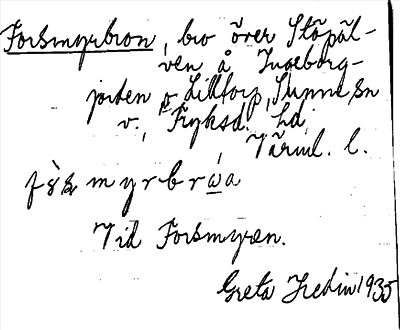 Forsmyrbron, bro över Stöpäl-
ven å Ingeborg-
jorden o. Lillforp, Sunne sn
v., Fryksd. hd,
Värml. l.
myrbrωa
Vid Forsmyren.
Greta Hedin 1935